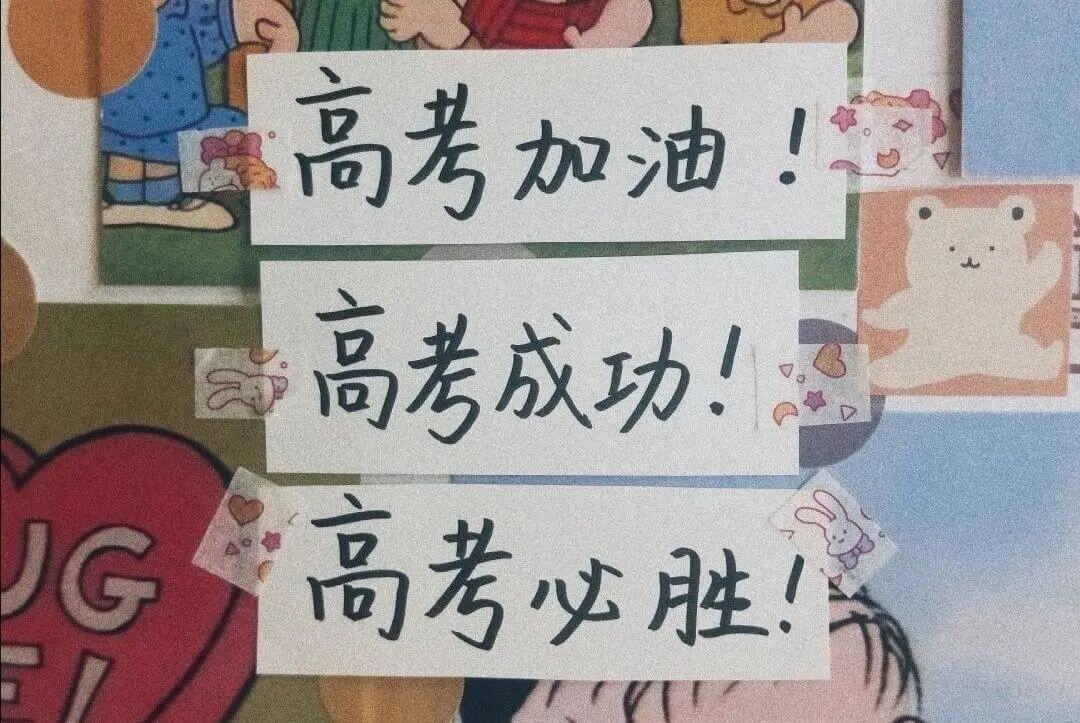 高考加油！
高考成功！
高考必胜！
UG